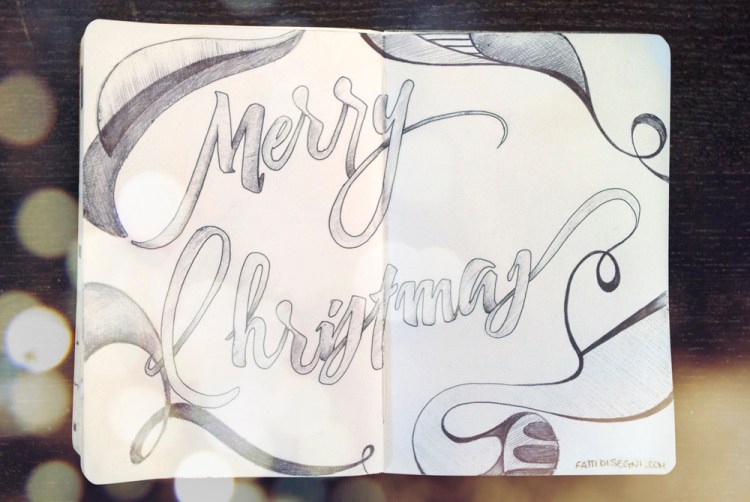 Merry
Christmas
FATTIDISEGNI.COM